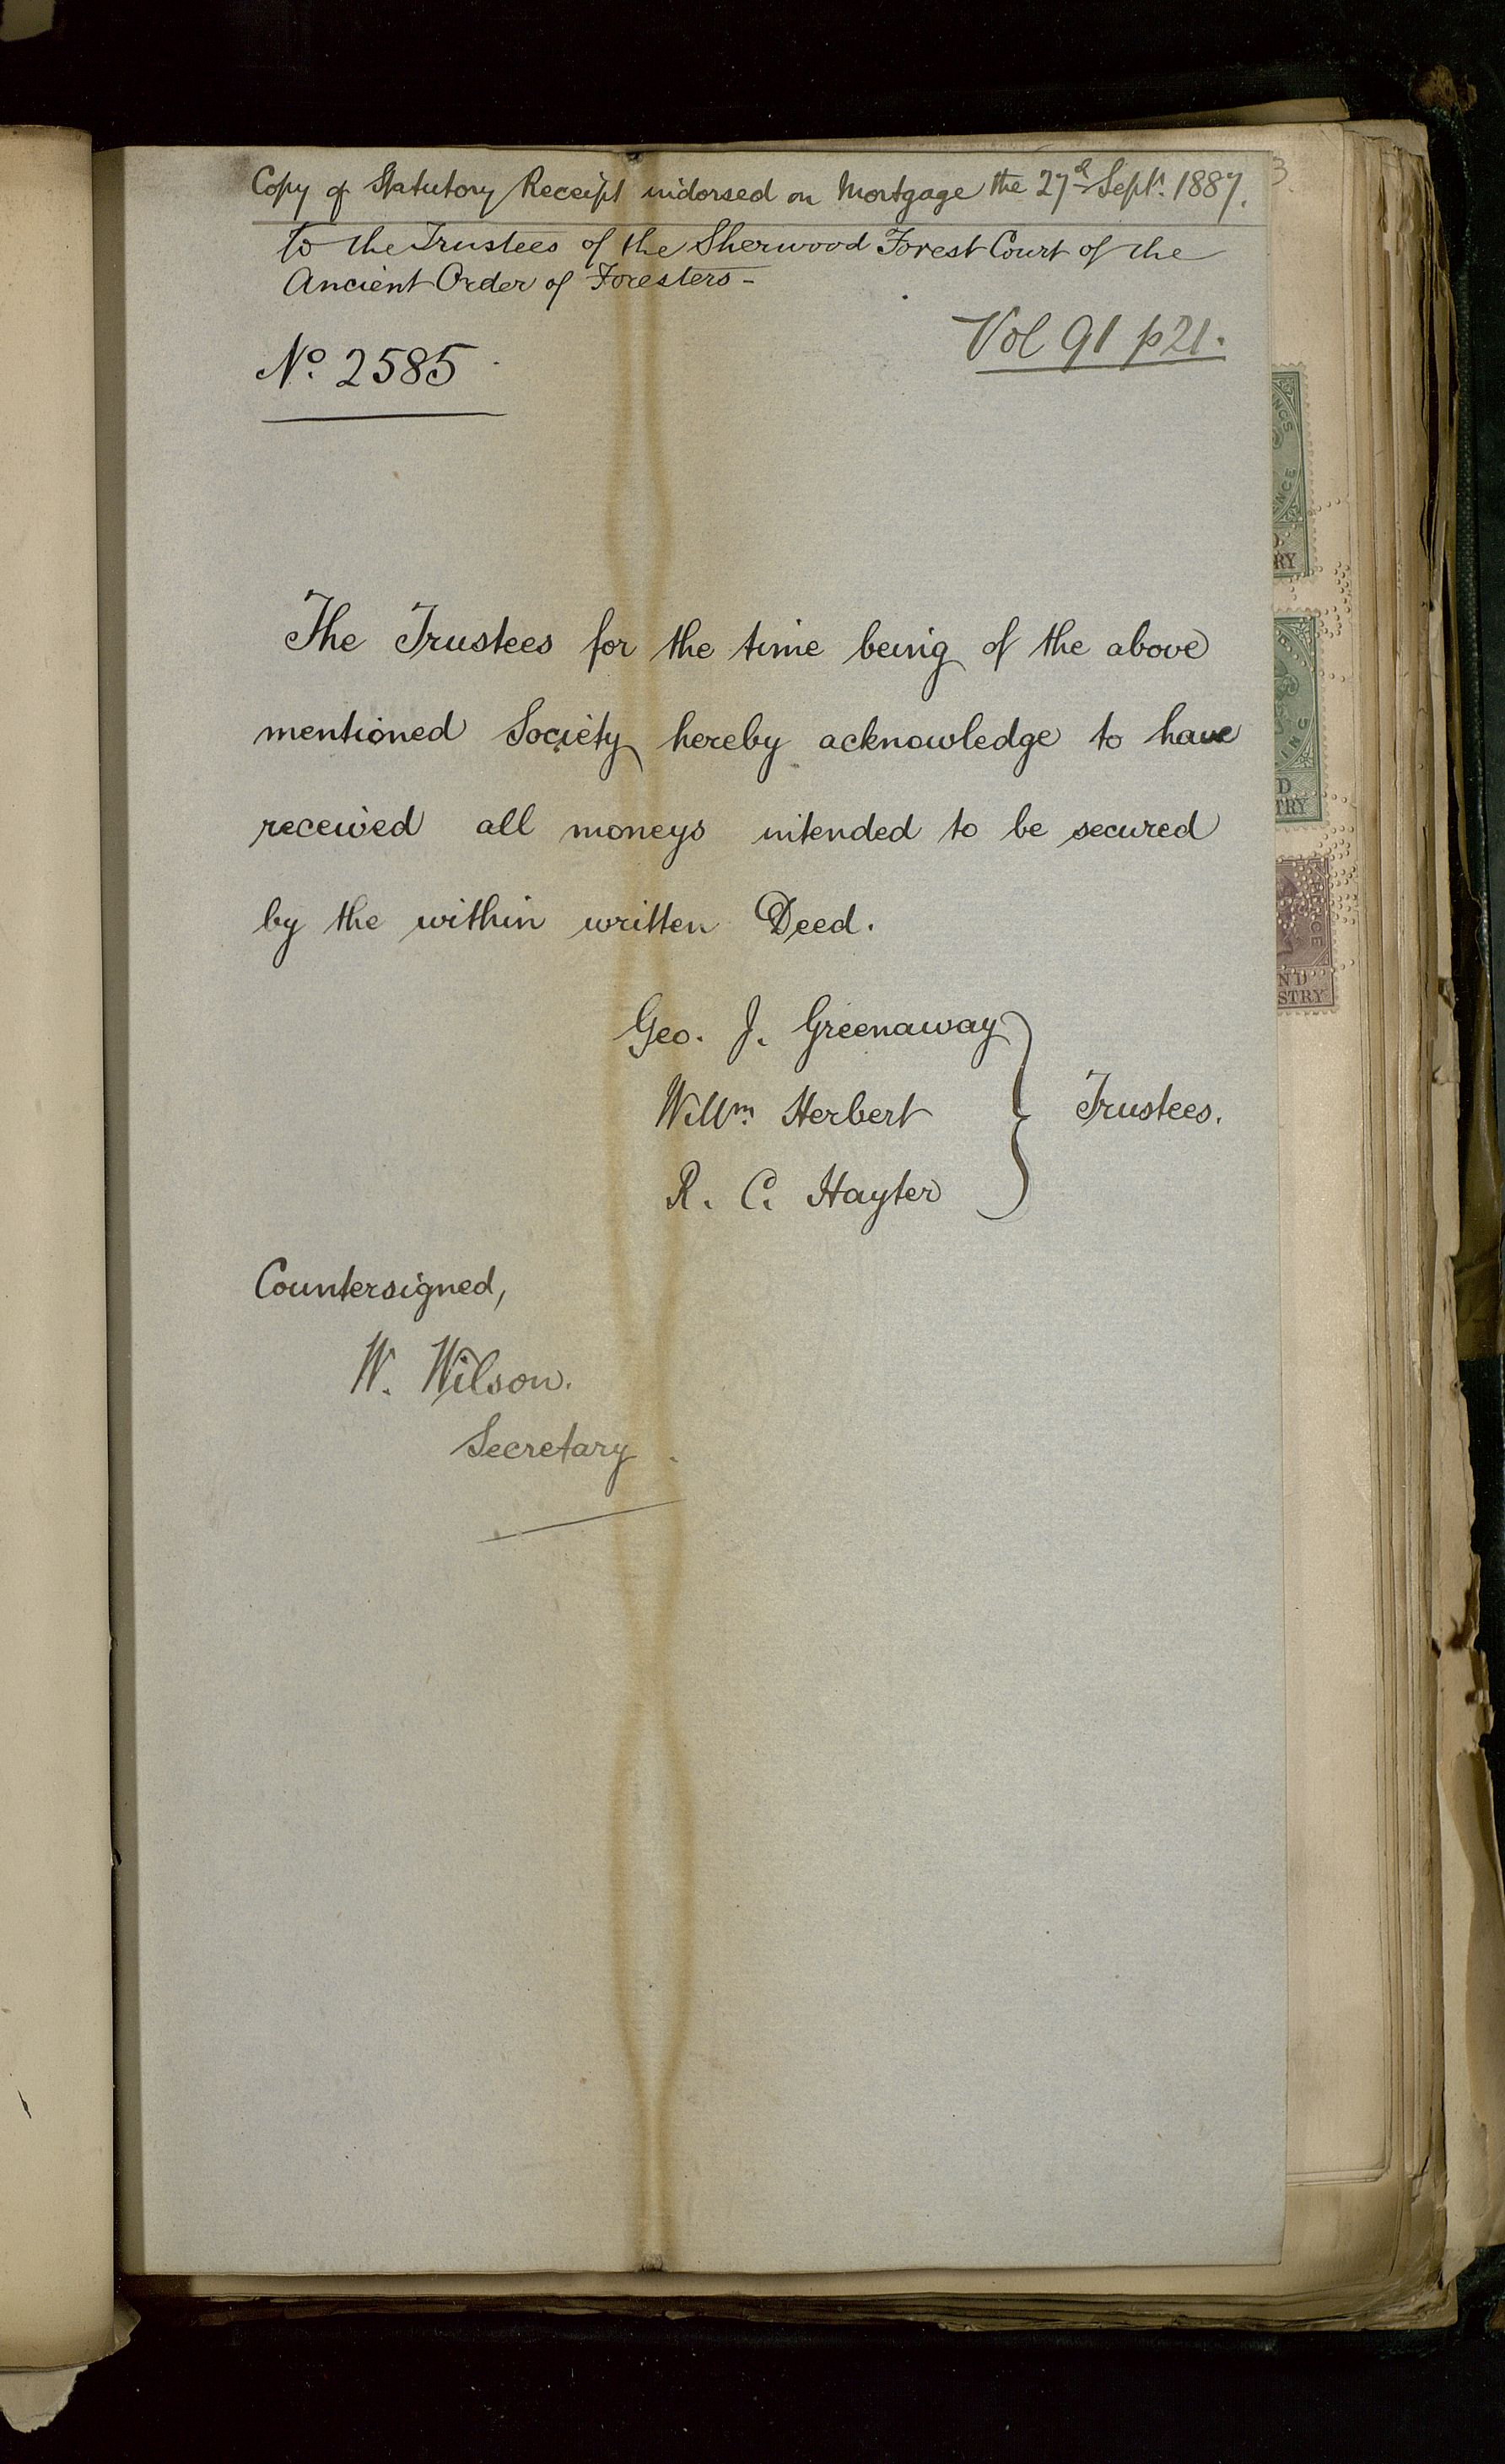 Copy of Statutory Receipt indorsed on Mortgage the 27th Sept. 1887.
to the Trustees of the Sherwood Forest Court of the
Ancient Order of Foresters -
No. 2585
Vol 91 p 21.
The Trustees for the time being of the above
mentioned Society hereby acknowledge to have
received all moneys intended to be secured
by the within written Deed.
Geo. J. Greenaway
Willm. Herbert
Trustees.
R. C. Hayter
Countersigned,
W. Wilson.
Secretary
3.
NGS
NCE
RY
ING
D
TRY
ENCE
ND
STRY